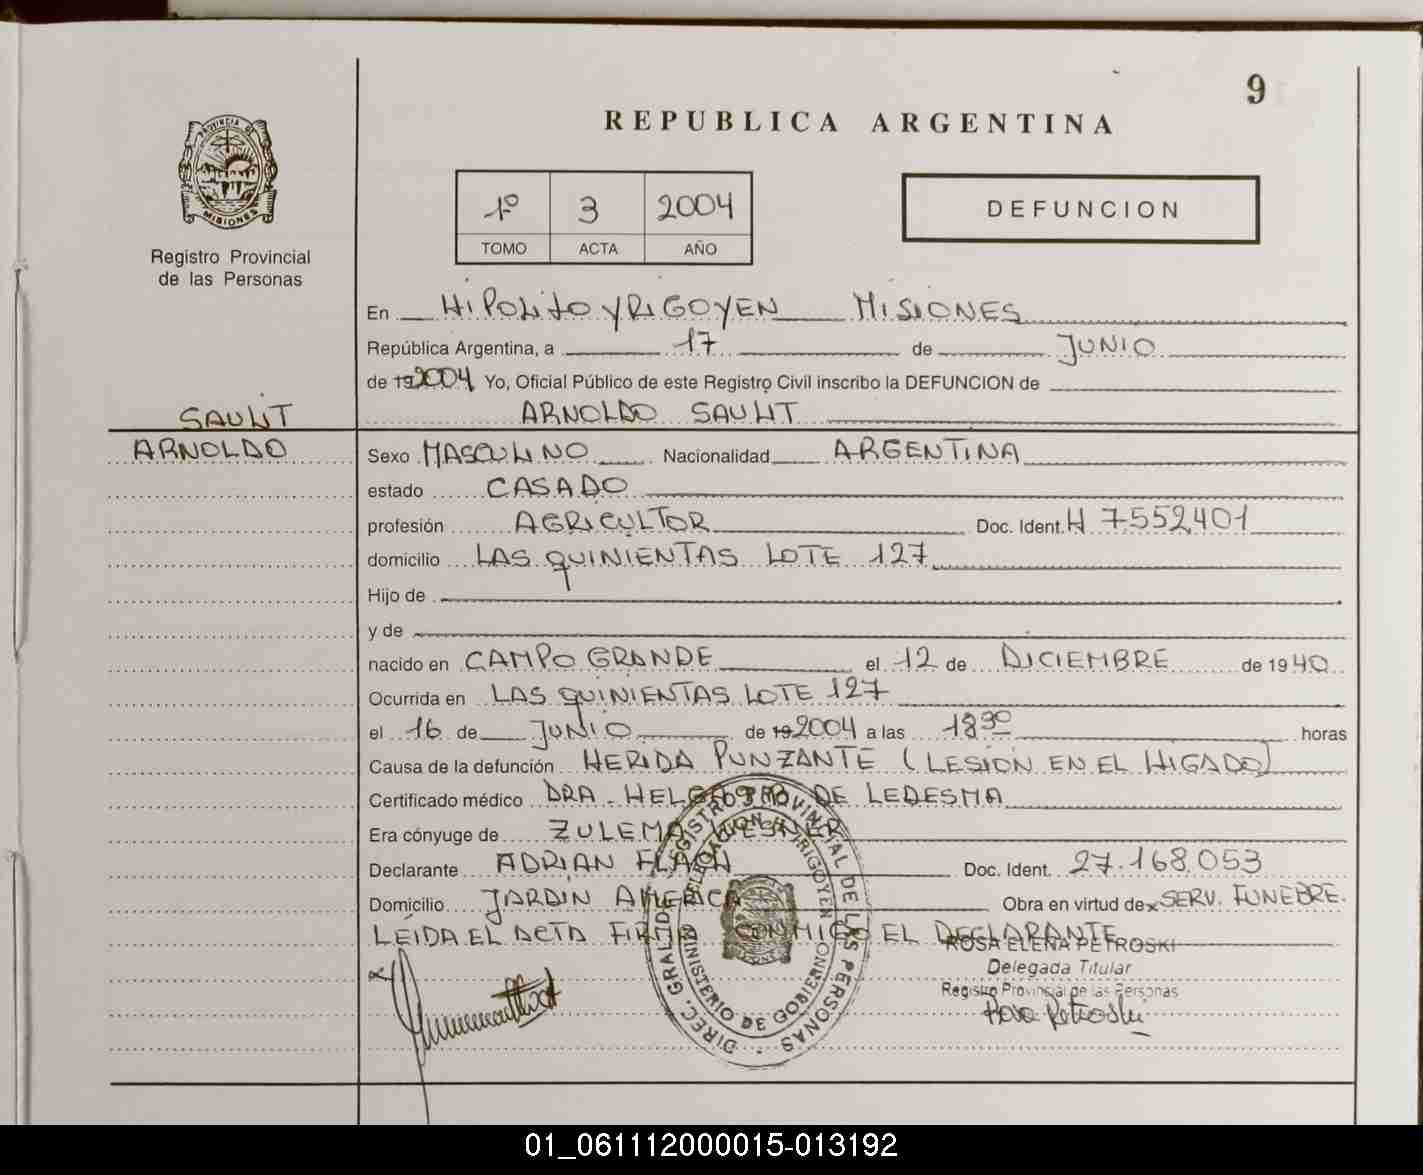 9
REPUBLICA ARGENTINA
PROVINCIA DE
MISIONES
Registro Provincial
de las Personas
1º 3 2004
TOMO ACTA AÑO
DEFUNCION
En HiPOLitO YRIGOYEN MISIONES
República Argentina, a 17 de JUNIO
de 192004 Yo, Oficial Público de este Registro Civil inscribo la DEFUNCION de
SAULIT
ARNOLDO SAULIT
ARNOLDO
Sexo MASCULINO Nacionalidad ARGENTINA
estado CASADO
profesión AGRICULTOR Doc. Ident. M 7.552.401
domicilio LAS QUINIENTAS LOTE 127
Hijo de
y de
nacido en CAMPO GRANDE el 12 de DICIEMBRE de 1940
Ocurrida en LAS QUINIENTAS LOTE 127
el 16 de JUNIO de 192004 a las 18 30 horas
Causa de la defunción HERIDA PUNZANTE (LESION EN EL HIGADO)
Certificado médico DRA. HELGA DE LEDESMA
Era cónyuge de ZULEMA
Declarante ADRIAN FLACH Doc. Ident. 27.168.053
Domicilio JARDIN AMERICA Obra en virtud de x SERV. FUNEBRE.
LEIDA EL ACTA FIRMA CONMIGO EL DECLARANTE
ROSA ELENA PETROSKI
Delegada Titular
Registro Provincial de las Personas
Rosa Petroski
DIREC. GRAL. DEL REGISTRO PROVINCIAL DE LAS PERSONAS
MINISTERIO DE GOBIERNO
DELEGACION H. YRIGOYEN
01_061112000015-013192